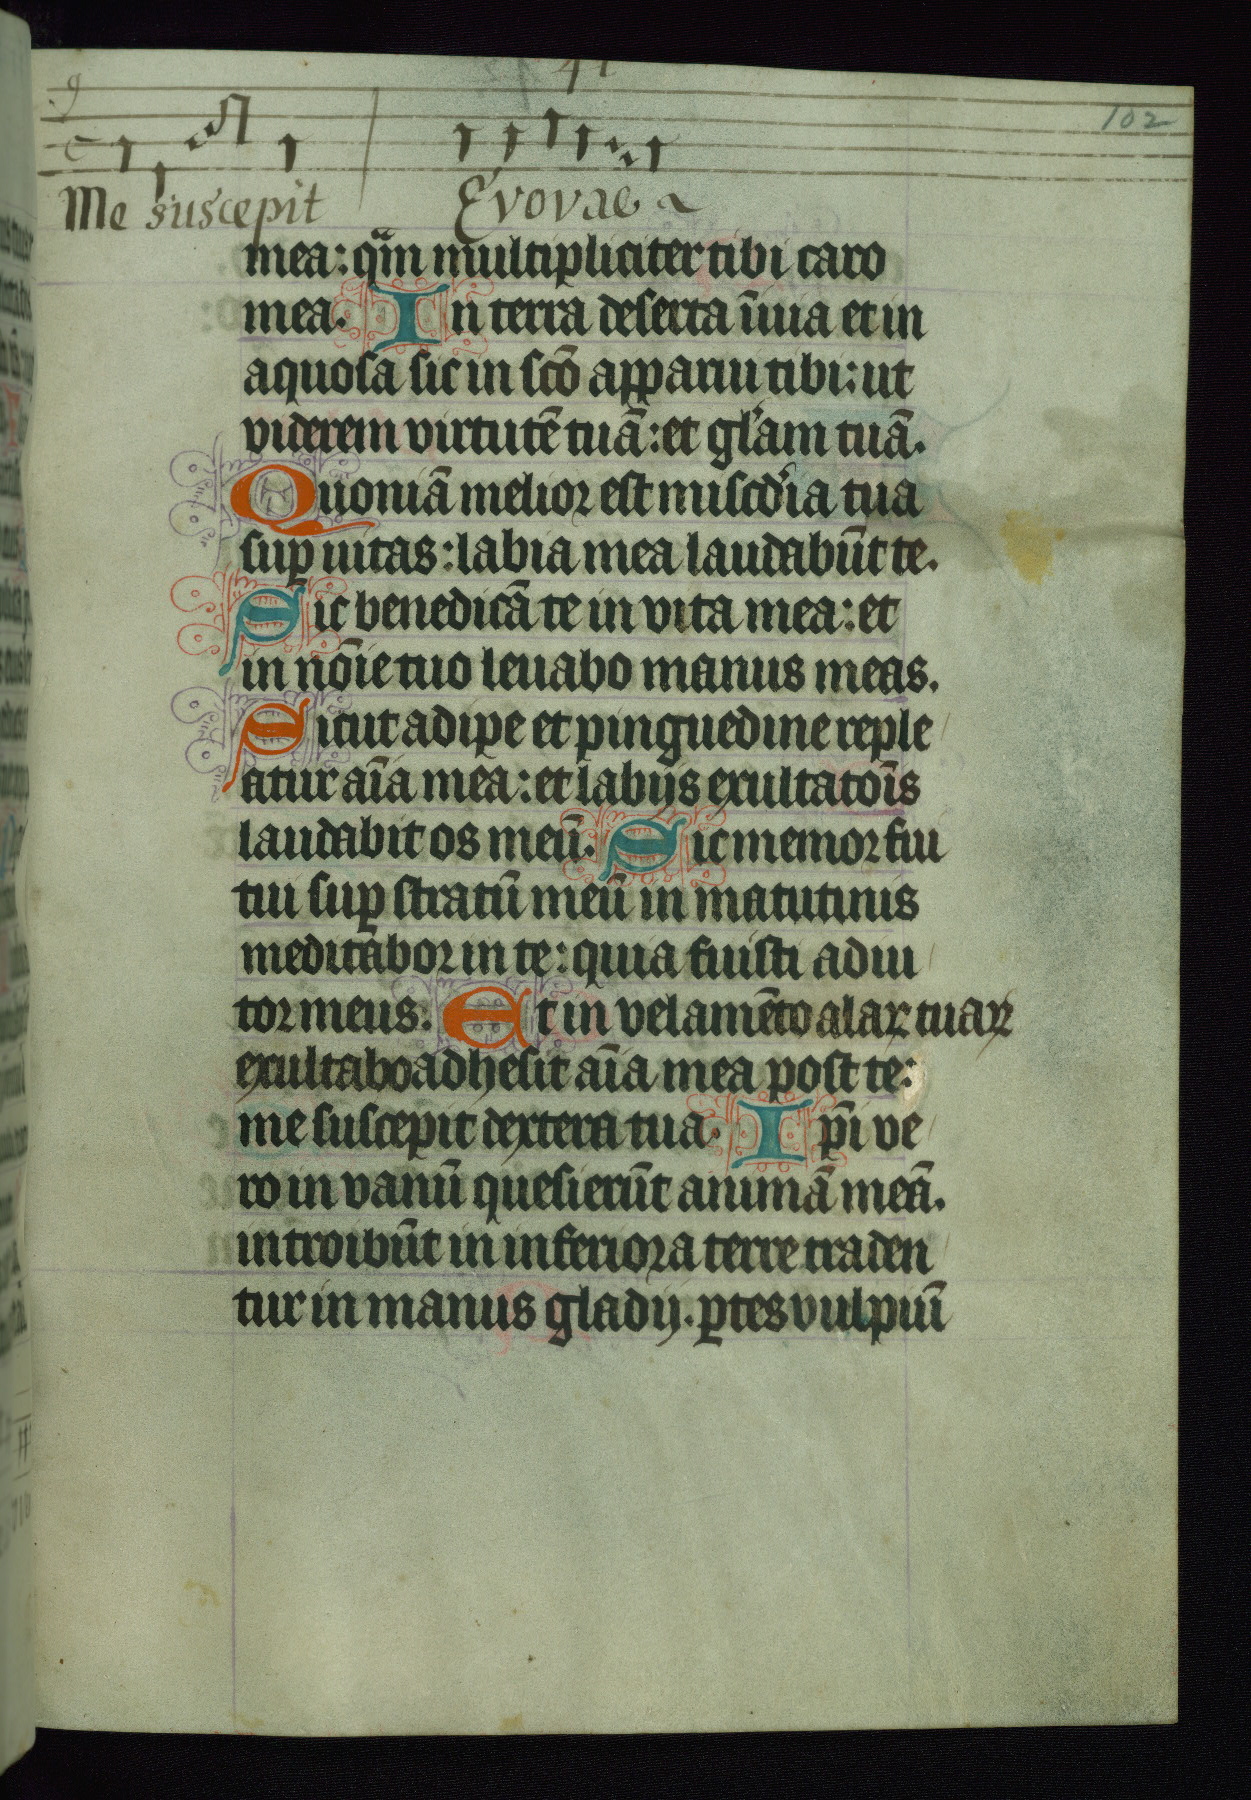 102
Me suscepit Evovae
mea: qm̃ multipliciter tibi caro
mea. In terra deserta īuia et in
aquosa sic in scō apparui tibi: ut
viderem virtutē tuā: et gl'am tuā.
Quoniā melior est miscd'ia tua
sup uitas: labia mea laudabūt te.
Sic benedicā te in vita mea: et
in nōie tuo leuabo manus meas.
Sicut adipe et pinguedine reple
atur aīa mea: et labijs exultatōis
laudabit os meū. Sic memor fui
tui sup stratū meū in matutinis
meditabor in te: quia fuisti adiu
tor meus. Et in velamēto alaꝝ tuaꝝ
exultabo adhesit aīa mea post te:
me suscepit dextera tua. Ip̄i ve
ro in vanū quesierūt animā meā.
introibūt in inferiora terre traden
tur in manus gladij. ꝑtes vulpiū